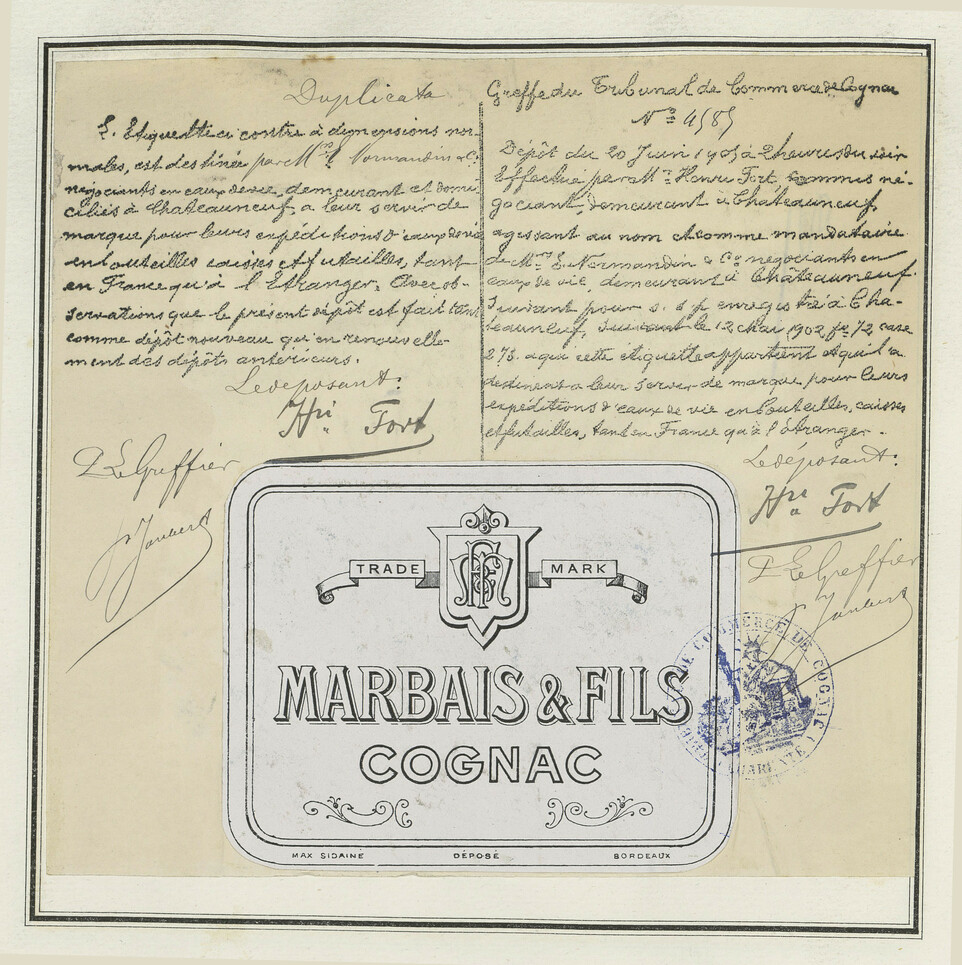 Duplicata
L'Etiquette ci contre à dimensions nor-
males, est destinée par Mrs E. Normandin & Co
négociants en eaux de vie, demeurant et domi-
ciliés à Chateauneuf, a leur servir de
marque pour leurs expéditions d'eaux de vie
en bouteilles caisses et futailles, tant
en France qu'à l'Etranger. Avec ob-
servations que le présent dépôt est fait tant
comme dépôt nouveau qu'en renouvelle-
ment des dépôts antérieurs.
Le déposant:
Hri Fort
P Le Greffier
Joubert
Greffe du Tribunal de Commerce de Cognac
No 4585
Dépôt du 20 Juin 1905 à 2 heures du soir
Effectué par Mr Henri Fort, commis né-
gociant, demeurant à Châteauneuf,
agissant au nom et comme mandataire
de Mrs E. Normandin & Co négociants en
eaux de vie, demeurant à Châteauneuf
suivant pour s. s p enregistré à Cha-
teauneuf, suivant le 12 Mai 1902 fo 72, case
273. a qui cette étiquette appartient et qui la
destinent a leur servir de marque pour leurs
expéditions d'eaux de vie en bouteilles, caisses
et futailles, tant en France qu'à l'étranger.
Le déposant:
Hri Fort
P Le Greffier
Joubert
TRADE MARK
MARBAIS & FILS
COGNAC
MAX SIDAINE DÉPOSÉ BORDEAUX
DE COMMERCE DE COGNAC
CHARENTE